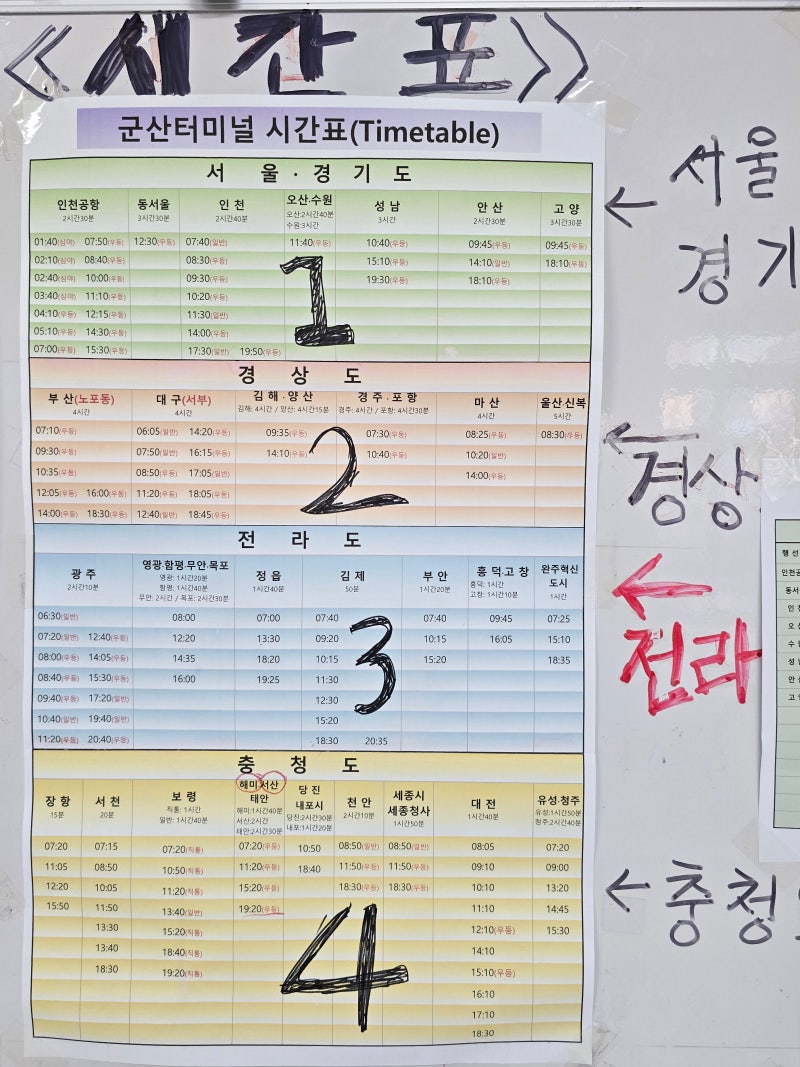 <<시간표>>
군산터미널 시간표(Timetable)
서울·경기도
인천공항 동서울 인천 오산·수원 성남 안산 고양
2시간30분 3시간30분 2시간40분 오산:2시간40분 3시간 2시간30분 3시간30분
수원:3시간
01:40(심야) 07:50(우등) 12:30(우등) 07:40(일반) 11:40(우등) 10:40(우등) 09:45(우등) 09:45(우등)
02:10(심야) 08:40(우등) 08:30(우등) 15:10(우등) 14:10(일반) 18:10(우등)
02:40(심야) 10:00(우등) 09:30(우등) 19:30(우등) 18:10(우등)
03:40(심야) 11:10(우등) 10:20(우등)
04:10(우등) 12:15(우등) 11:30(일반)
05:10(우등) 14:30(우등) 14:00(우등)
07:00(우등) 15:30(우등) 17:30(일반) 19:50(우등)
1
서울
경기
경상도
부산(노포동) 대구(서부) 김해·양산 경주·포항 마산 울산·신복
4시간 4시간 김해: 4시간 / 양산: 4시간15분 경주: 4시간 / 포항: 4시간30분 4시간 5시간
07:10(우등) 06:05(일반) 14:20(우등) 09:35(우등) 07:30(우등) 08:25(우등) 08:30(우등)
09:30(우등) 07:50(일반) 16:15(우등) 14:10(우등) 10:40(우등) 10:20(일반)
10:35(우등) 08:50(우등) 17:05(일반) 14:00(우등)
12:05(우등) 16:00(우등) 11:20(우등) 18:05(우등)
14:00(우등) 18:30(우등) 12:40(일반) 18:45(우등)
2
경상
전라도
광주 영광·함평·무안·목포 정읍 김제 부안 흥덕·고창 완주혁신도시
2시간10분 영광: 1시간20분 1시간40분 50분 1시간20분 흥덕: 1시간 1시간
함평: 1시간40분 고창: 1시간10분
무안: 2시간 / 목포: 2시간30분
06:30(일반) 08:00 07:00 07:40 07:40 09:45 07:25
07:20(일반) 12:40(우등) 12:20 13:30 09:20 10:15 16:05 15:10
08:00(우등) 14:05(우등) 14:35 18:20 10:15 15:20 18:35
08:40(우등) 15:30(우등) 16:00 19:25 11:30
09:40(우등) 17:20(일반) 12:30
10:40(일반) 19:40(우등) 15:20
11:20(우등) 20:40(우등) 18:30 20:35
3
전라
충청도
장항 서천 보령 해미·서산 당진 천안 세종시 대전 유성·청주
태안 내포시 세종청사
15분 20분 직통: 1시간 해미:1시간40분 당진:2시간30분 2시간10분 1시간50분 1시간40분 유성:1시간50분
일반: 1시간40분 서산:2시간 내포:1시간20분 청주:2시간40분
태안:2시간30분
07:20 07:15 07:20(직통) 07:20(우등) 10:50 08:50(일반) 08:50(일반) 08:05 07:20
11:05 08:50 10:50(직통) 11:20(우등) 18:40 11:50(우등) 11:50(우등) 09:10 09:00
12:20 10:05 11:20(직통) 15:20(우등) 18:30(우등) 18:30(우등) 10:10 13:20
15:50 11:50 13:40(일반) 19:20(우등) 11:10 14:45
13:30 15:20(직통) 12:10(우등) 15:30
13:40 18:40(직통) 14:10
18:30 19:20(직통) 15:10(우등)
16:10
17:10
18:30
4
충청
행선
인천공
동서
인
오산
수
성남
안산
고